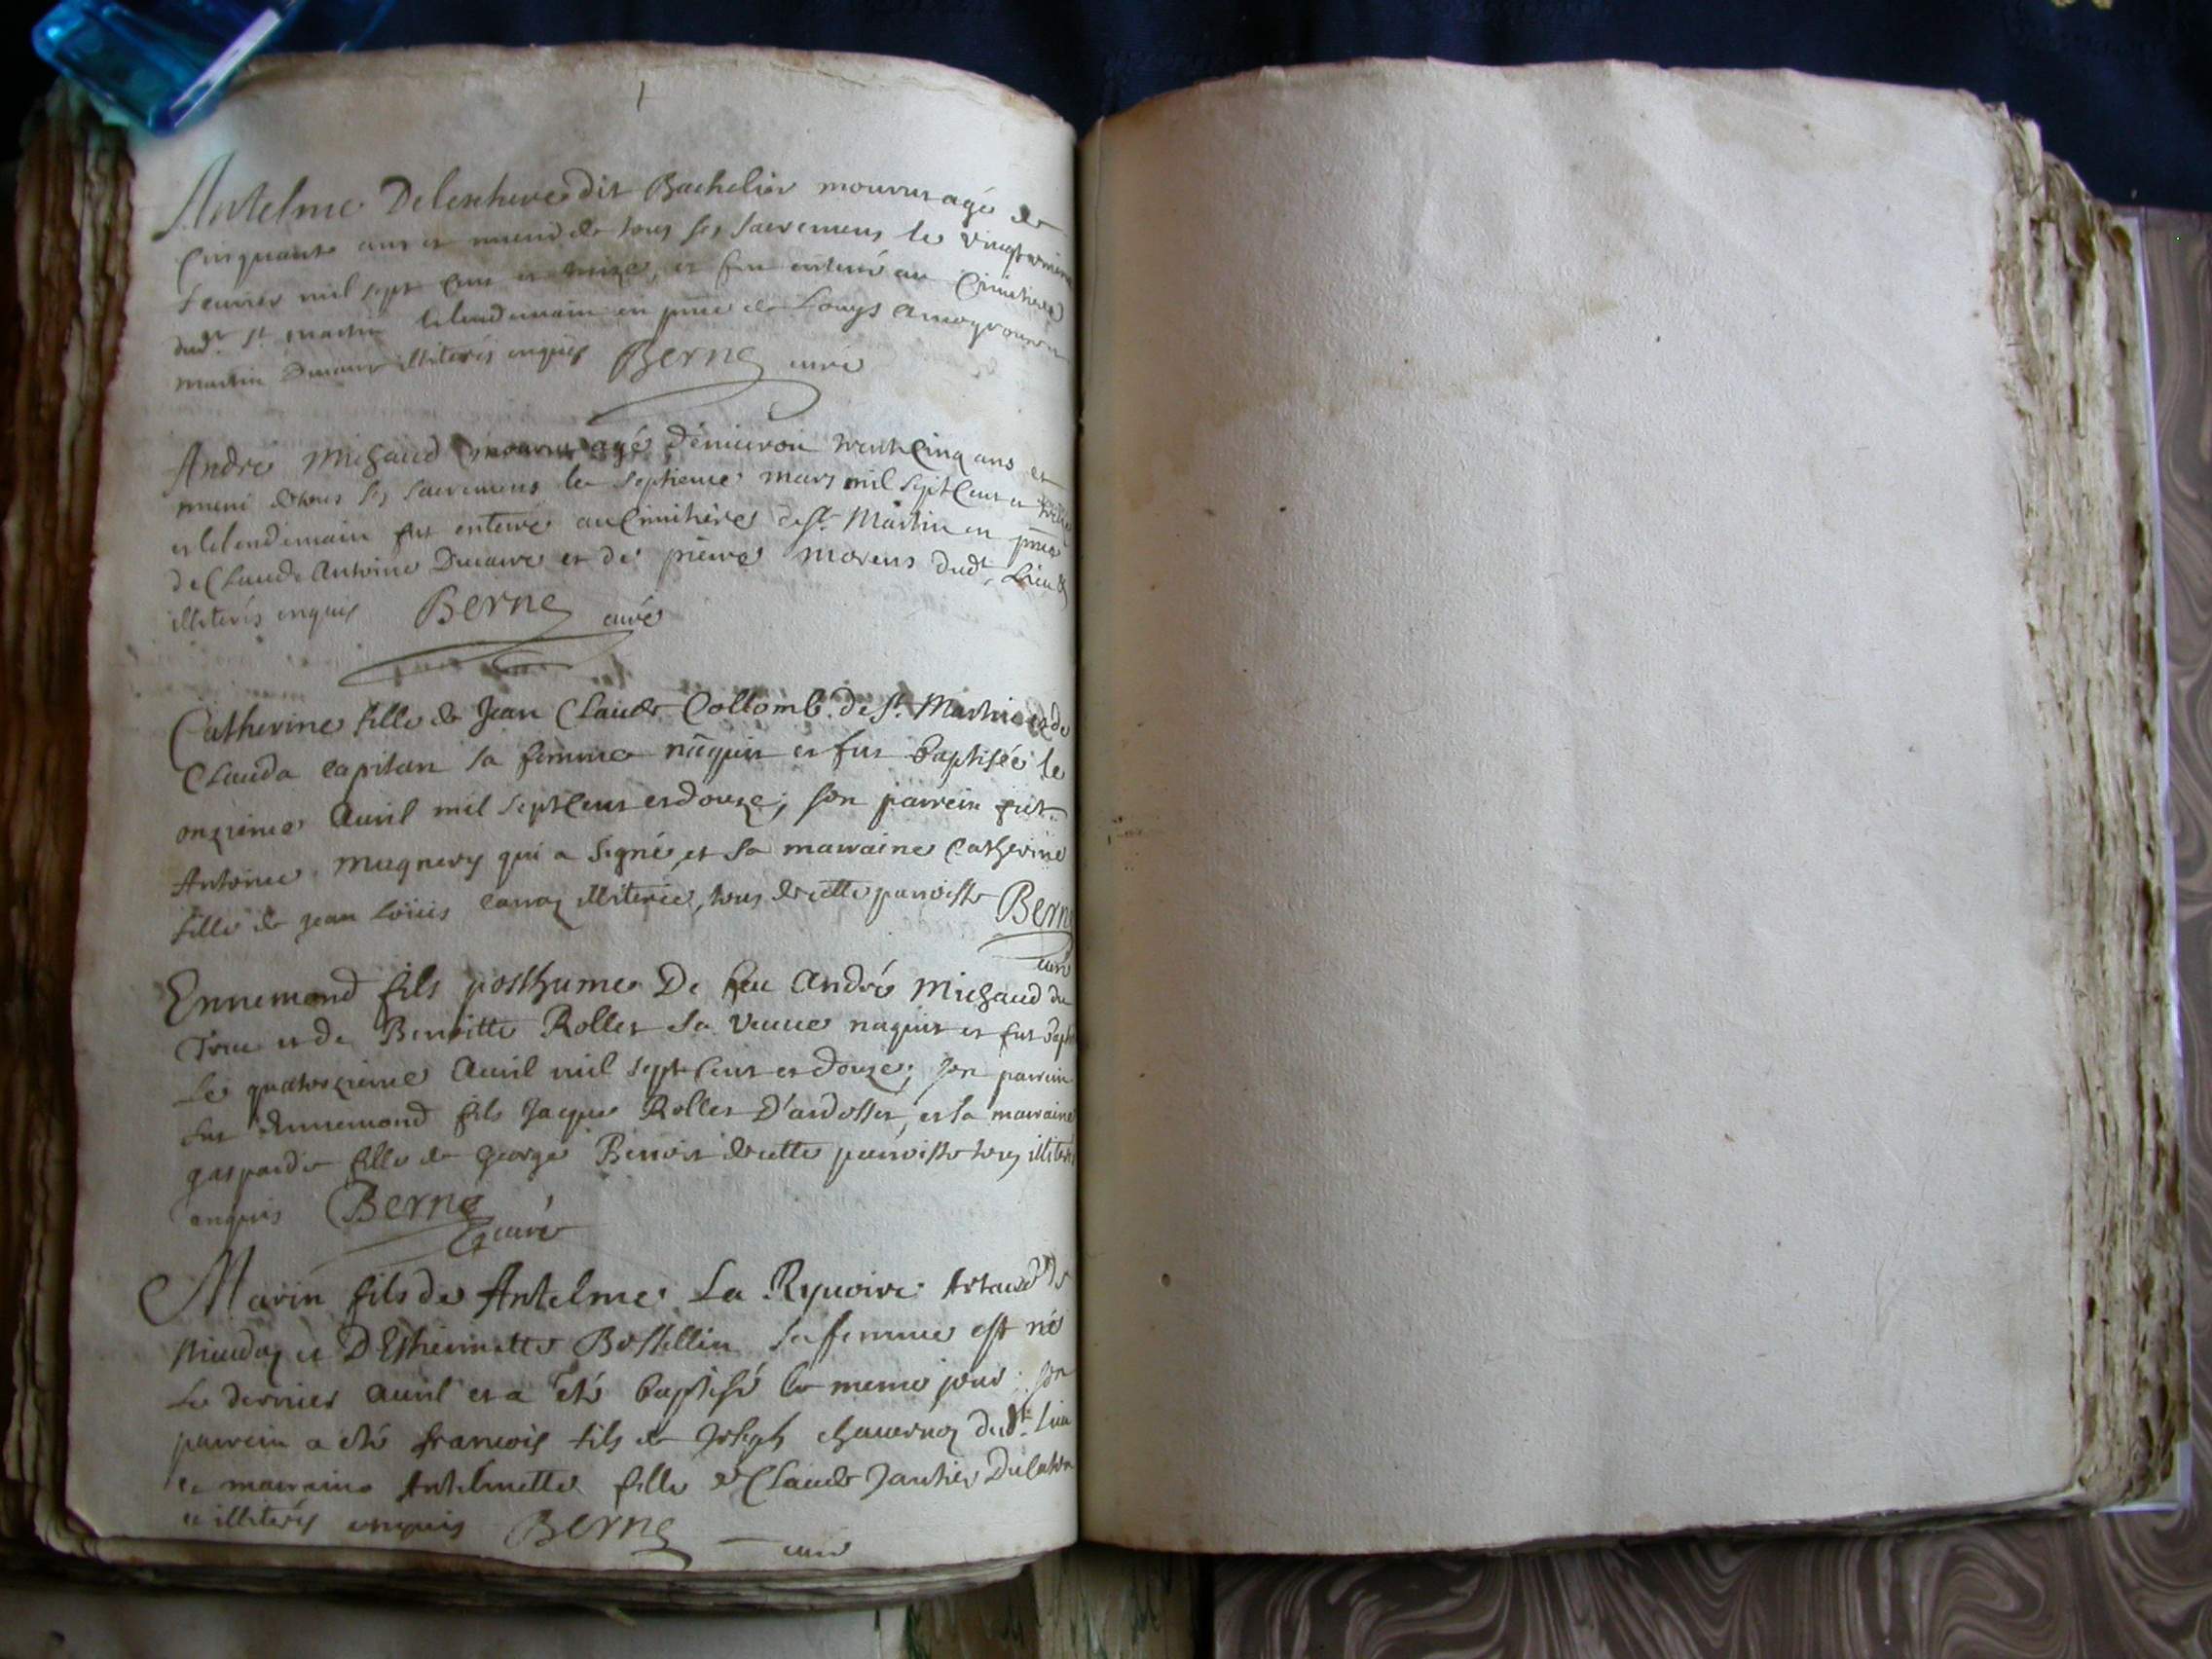 Antelme Delenhere dit Bachelier mourut agé de
Cinquante ans et muni de tous ses sacremens le vingt
feuvrier mil sept cent et treize, et fut enterré au Cimitiere
dudt. St. martin lelendemain en pnce de Louys
martin Ducave illiterés enquis Berne curé
André Michaud mourut agé d'enuiron trentecinq ans et
muni de tous ses sacremens le septieme mars mil sept cent et
et lelendemain fut enterré au Cimitiere de St. Martin en pnce
de Claude Antoine Ducave et de pierre morens dudt. Lieu
illiterés enquis Berne curé
Catherine fille de Jean Claude Collomb de St. Martin et de
Clauda capitan sa femme nâquit et fut baptisée le
onzieme Auril mil sept cent et douze; son parrein fut
Antoine Mugnery qui a signé et sa marraine Catherine
fille de Jean Loüis carraz illiterée, tous de cette parroisse Berne
curé
Ennemond fils posthume De feu André Michaud du
Truc et de Benoitte Rollet sa veuue naquit et fut bapt
Le quatorzieme Auril mil sept cent et douze; son parrein
fut Annemond fils Jaque Rollet D'ardosset, et sa marraine
gasparde fille de George Benoit de cette parroisse tous illiterés
enquis Berne curé
Marin fils de Antelme La Ryuoire Artaud
et D'Esthiennette Bostellin sa femme est né
Le dernier auril et a été baptisé le meme jour; son
parrein a été francois fils de Joseph chauernoz dudt. lieu
et marraine Antelmette fille de Claude Jantier
et illiterés enquis Berne curé